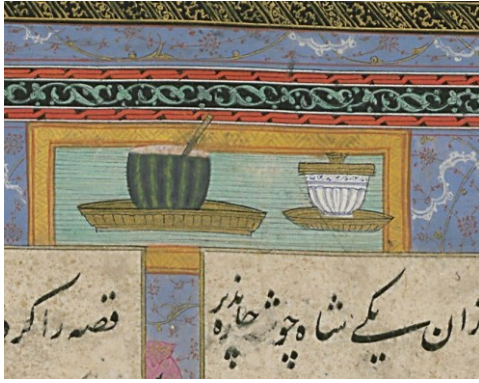 زان یکی شاه چو چاره پذیر
قصه را کرد